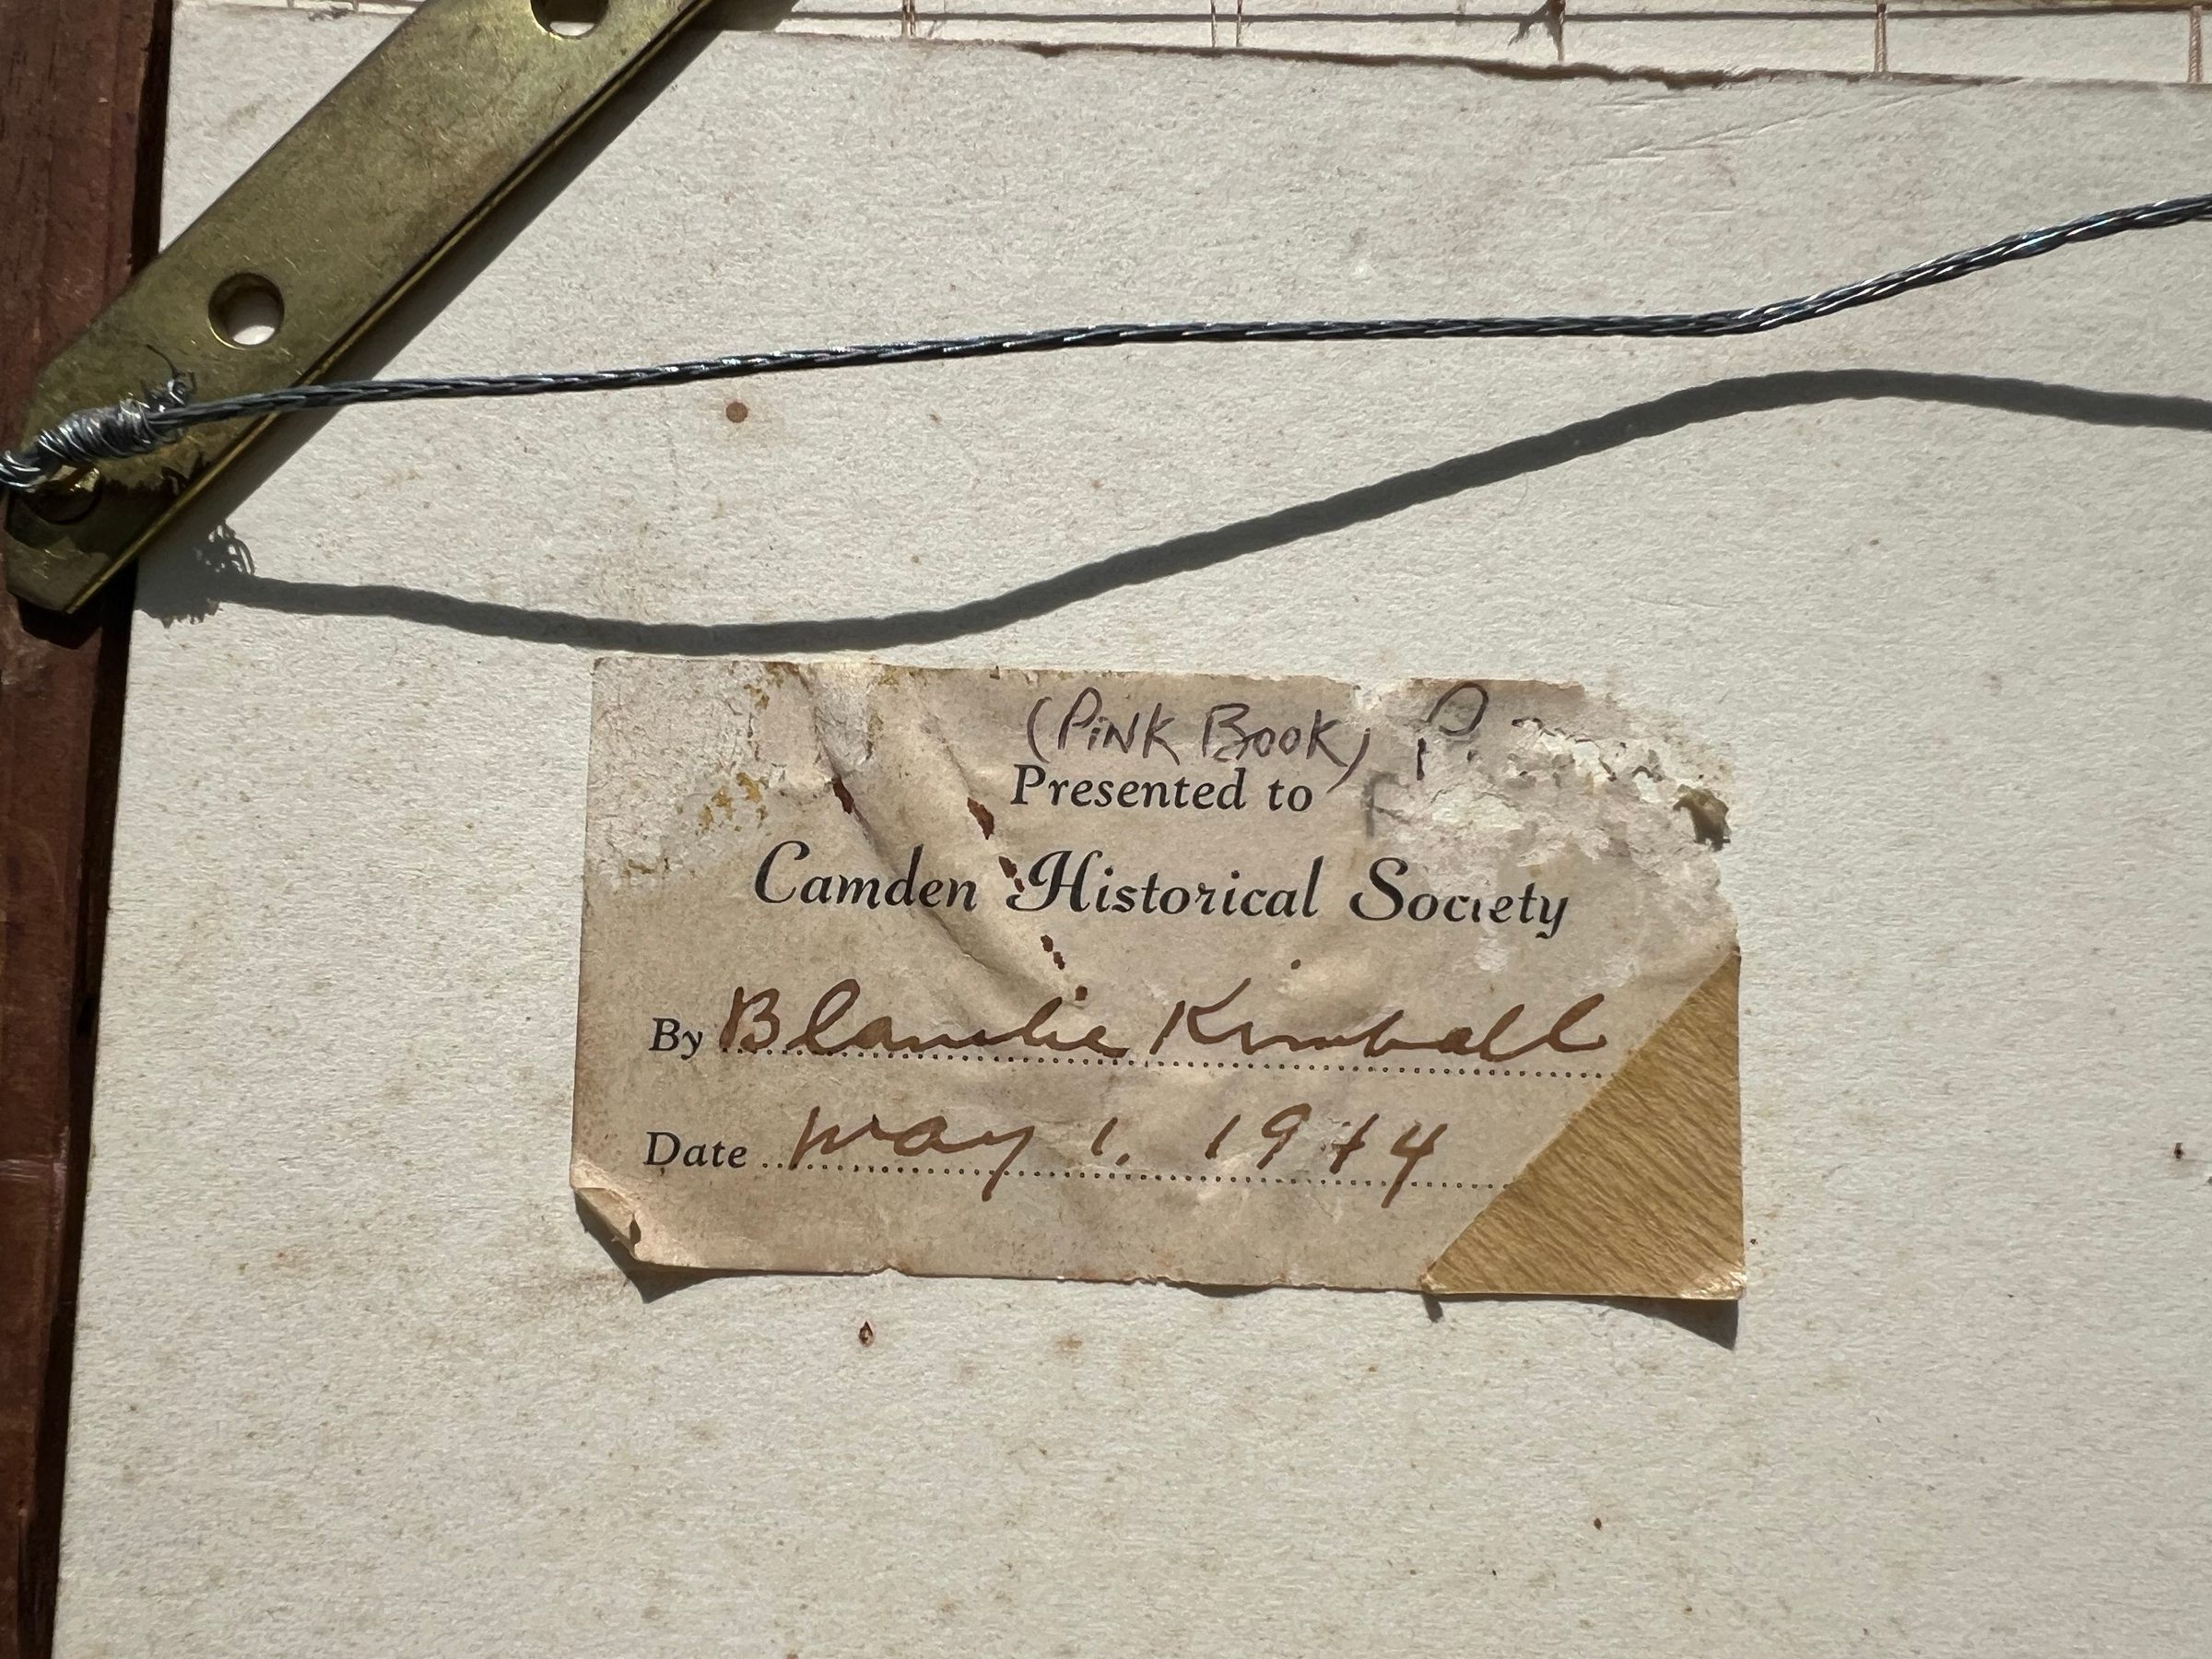 (PINK BOOK) P.
Presented to
Camden Historical Society
By Blanche Kimball
Date May 1, 1974